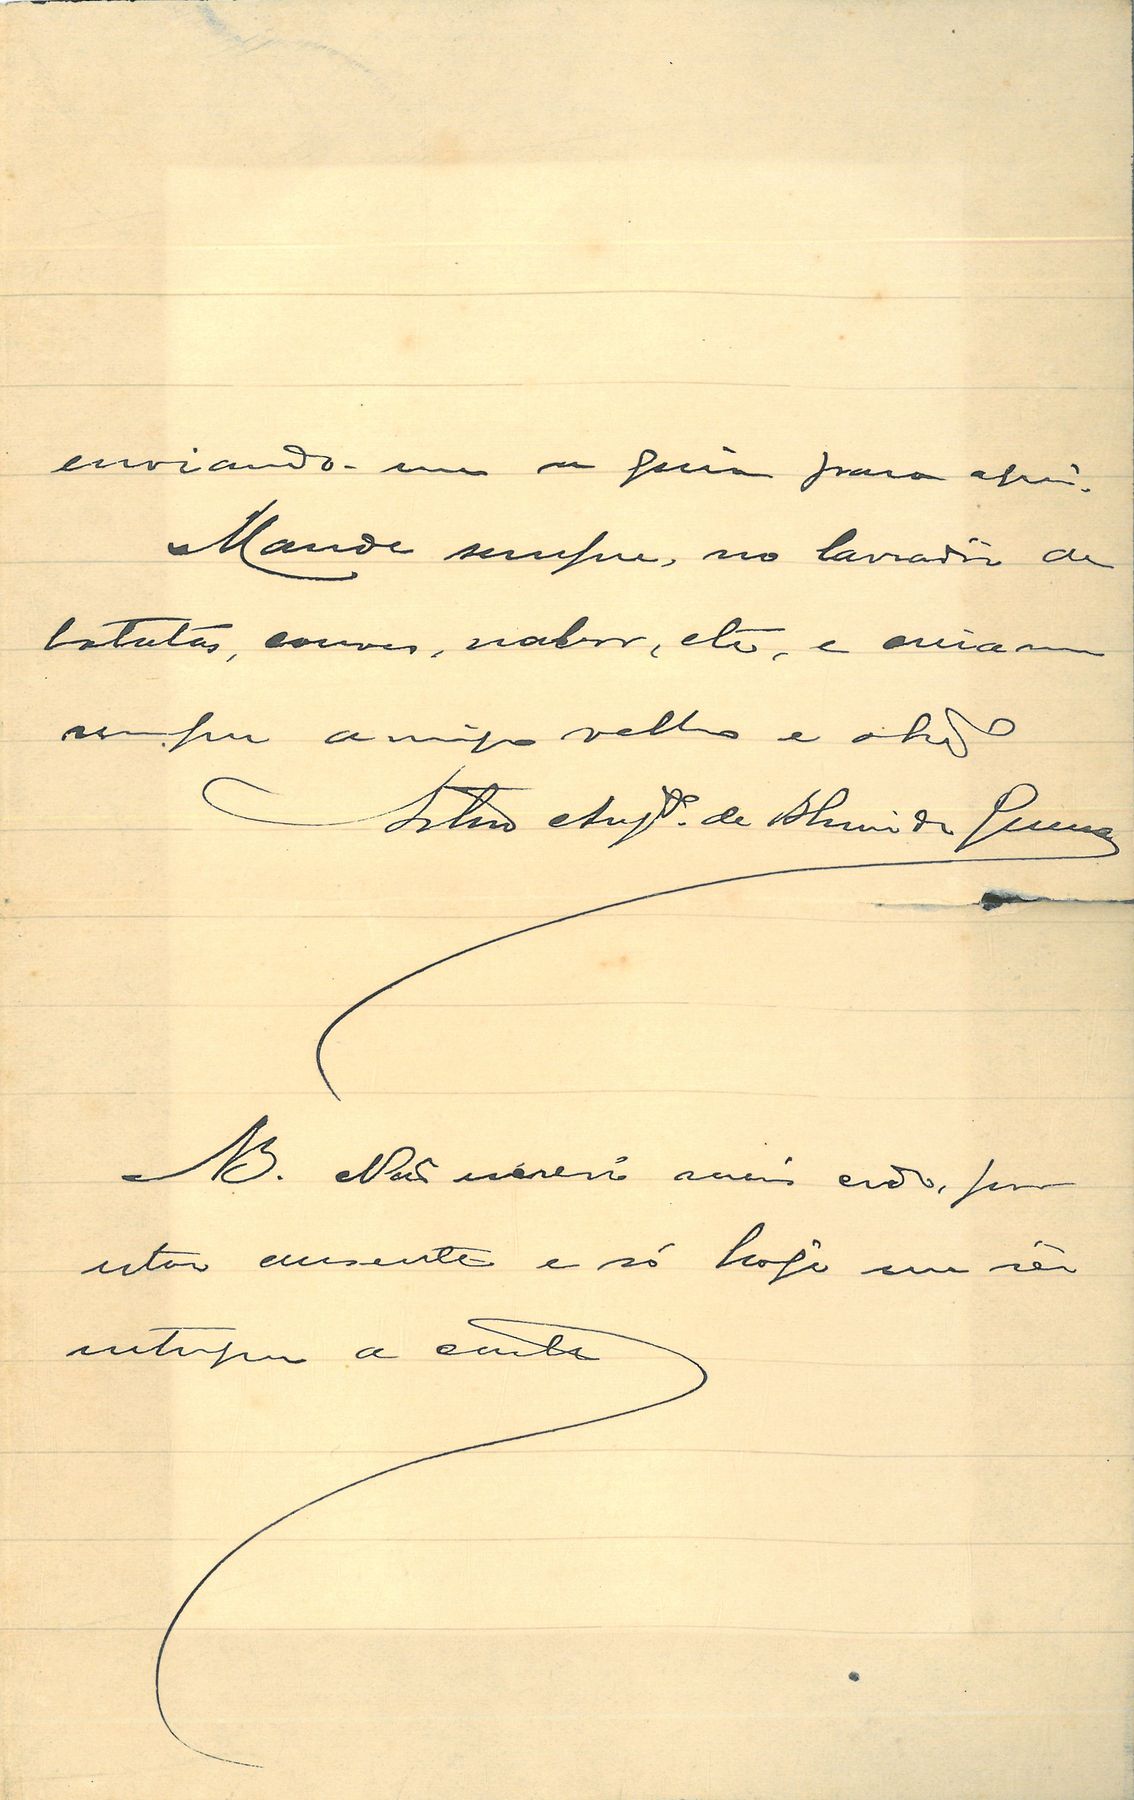 enviando-me a guia para aqui.
Mande sempre, no lavrador de
batatas, couves, nabos, etc, e creia-me
sempre amigo velho e obg.do
Augto. de Almeida
NB. Não escrevi mais cedo, por
estar ausente e só hoje me ser
entregue a carta